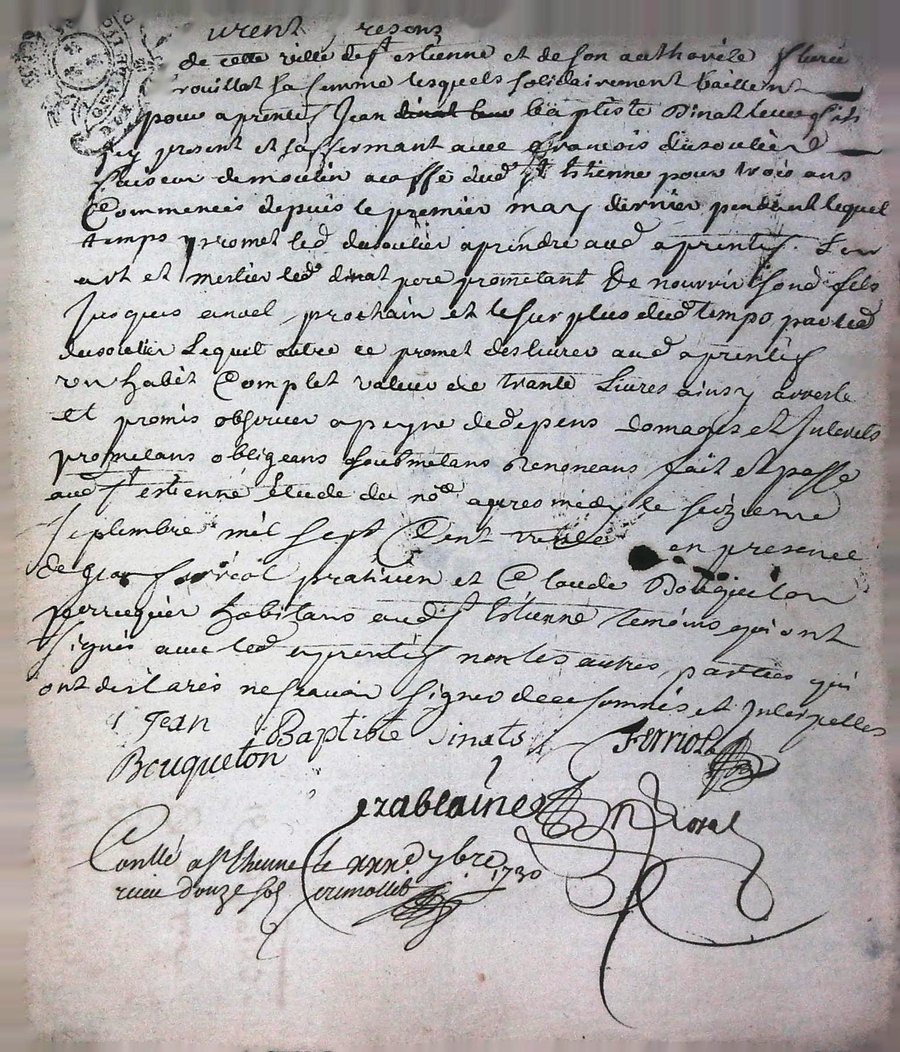 de cette ville de st estienne et de son authorité
sa femme lesquels solidairement baillent
pour aprentif Jean baptiste Dinat leur fils
icy present et saffermant avec francois dusoulier
faiseur de moulin a caffé dud st Estienne pour trois ans
Commencés depuis le premier may dernier pendant lequel
temps promet led dusoulier aprendre aud aprentif son
art et mestier led dinat pere prometant de nourrir sond fils
Jusques a noel prochain et le surplus dud temps par led
dusoulier Lequel outre ce promet deslivrer aud aprentif
un habit Complet valeur de trante Livres ainsy arresté
et promis observer a peyne de depens domages et Interets
prometans obligeans soubmetans Renonceans fait et passé
aud st estienne Etude du nore apres midy le seizieme
septembre mil sept Cent trente en presence
de praticien et Claude Bouqueton
perruquier habitans aud st Estienne temoins qui ont
signés avec led aprentif non les autres parties qui
ont declarés ne scavoir signer de ce sommés et Interpellés
Jean Baptiste Dinats
Bouqueton
ferriol
Conllé a St Etienne le xxx e 7bre 1730
receu douze sols